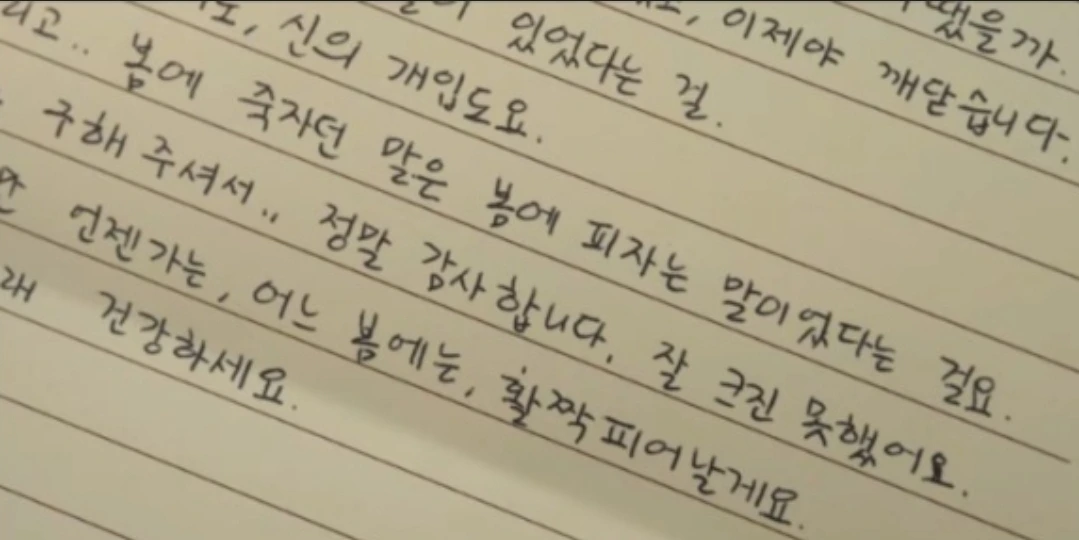 땠을까.
이제야 깨닫습니다.
있었다는 걸.
신의 개입도요.
봄에 죽자던 말은 봄에 피자는 말이었다는 걸요.
구해 주셔서.. 정말 감사합니다. 잘 크진 못했어요.
언젠가는, 어느 봄에는, 활짝 피어날게요.
건강하세요.